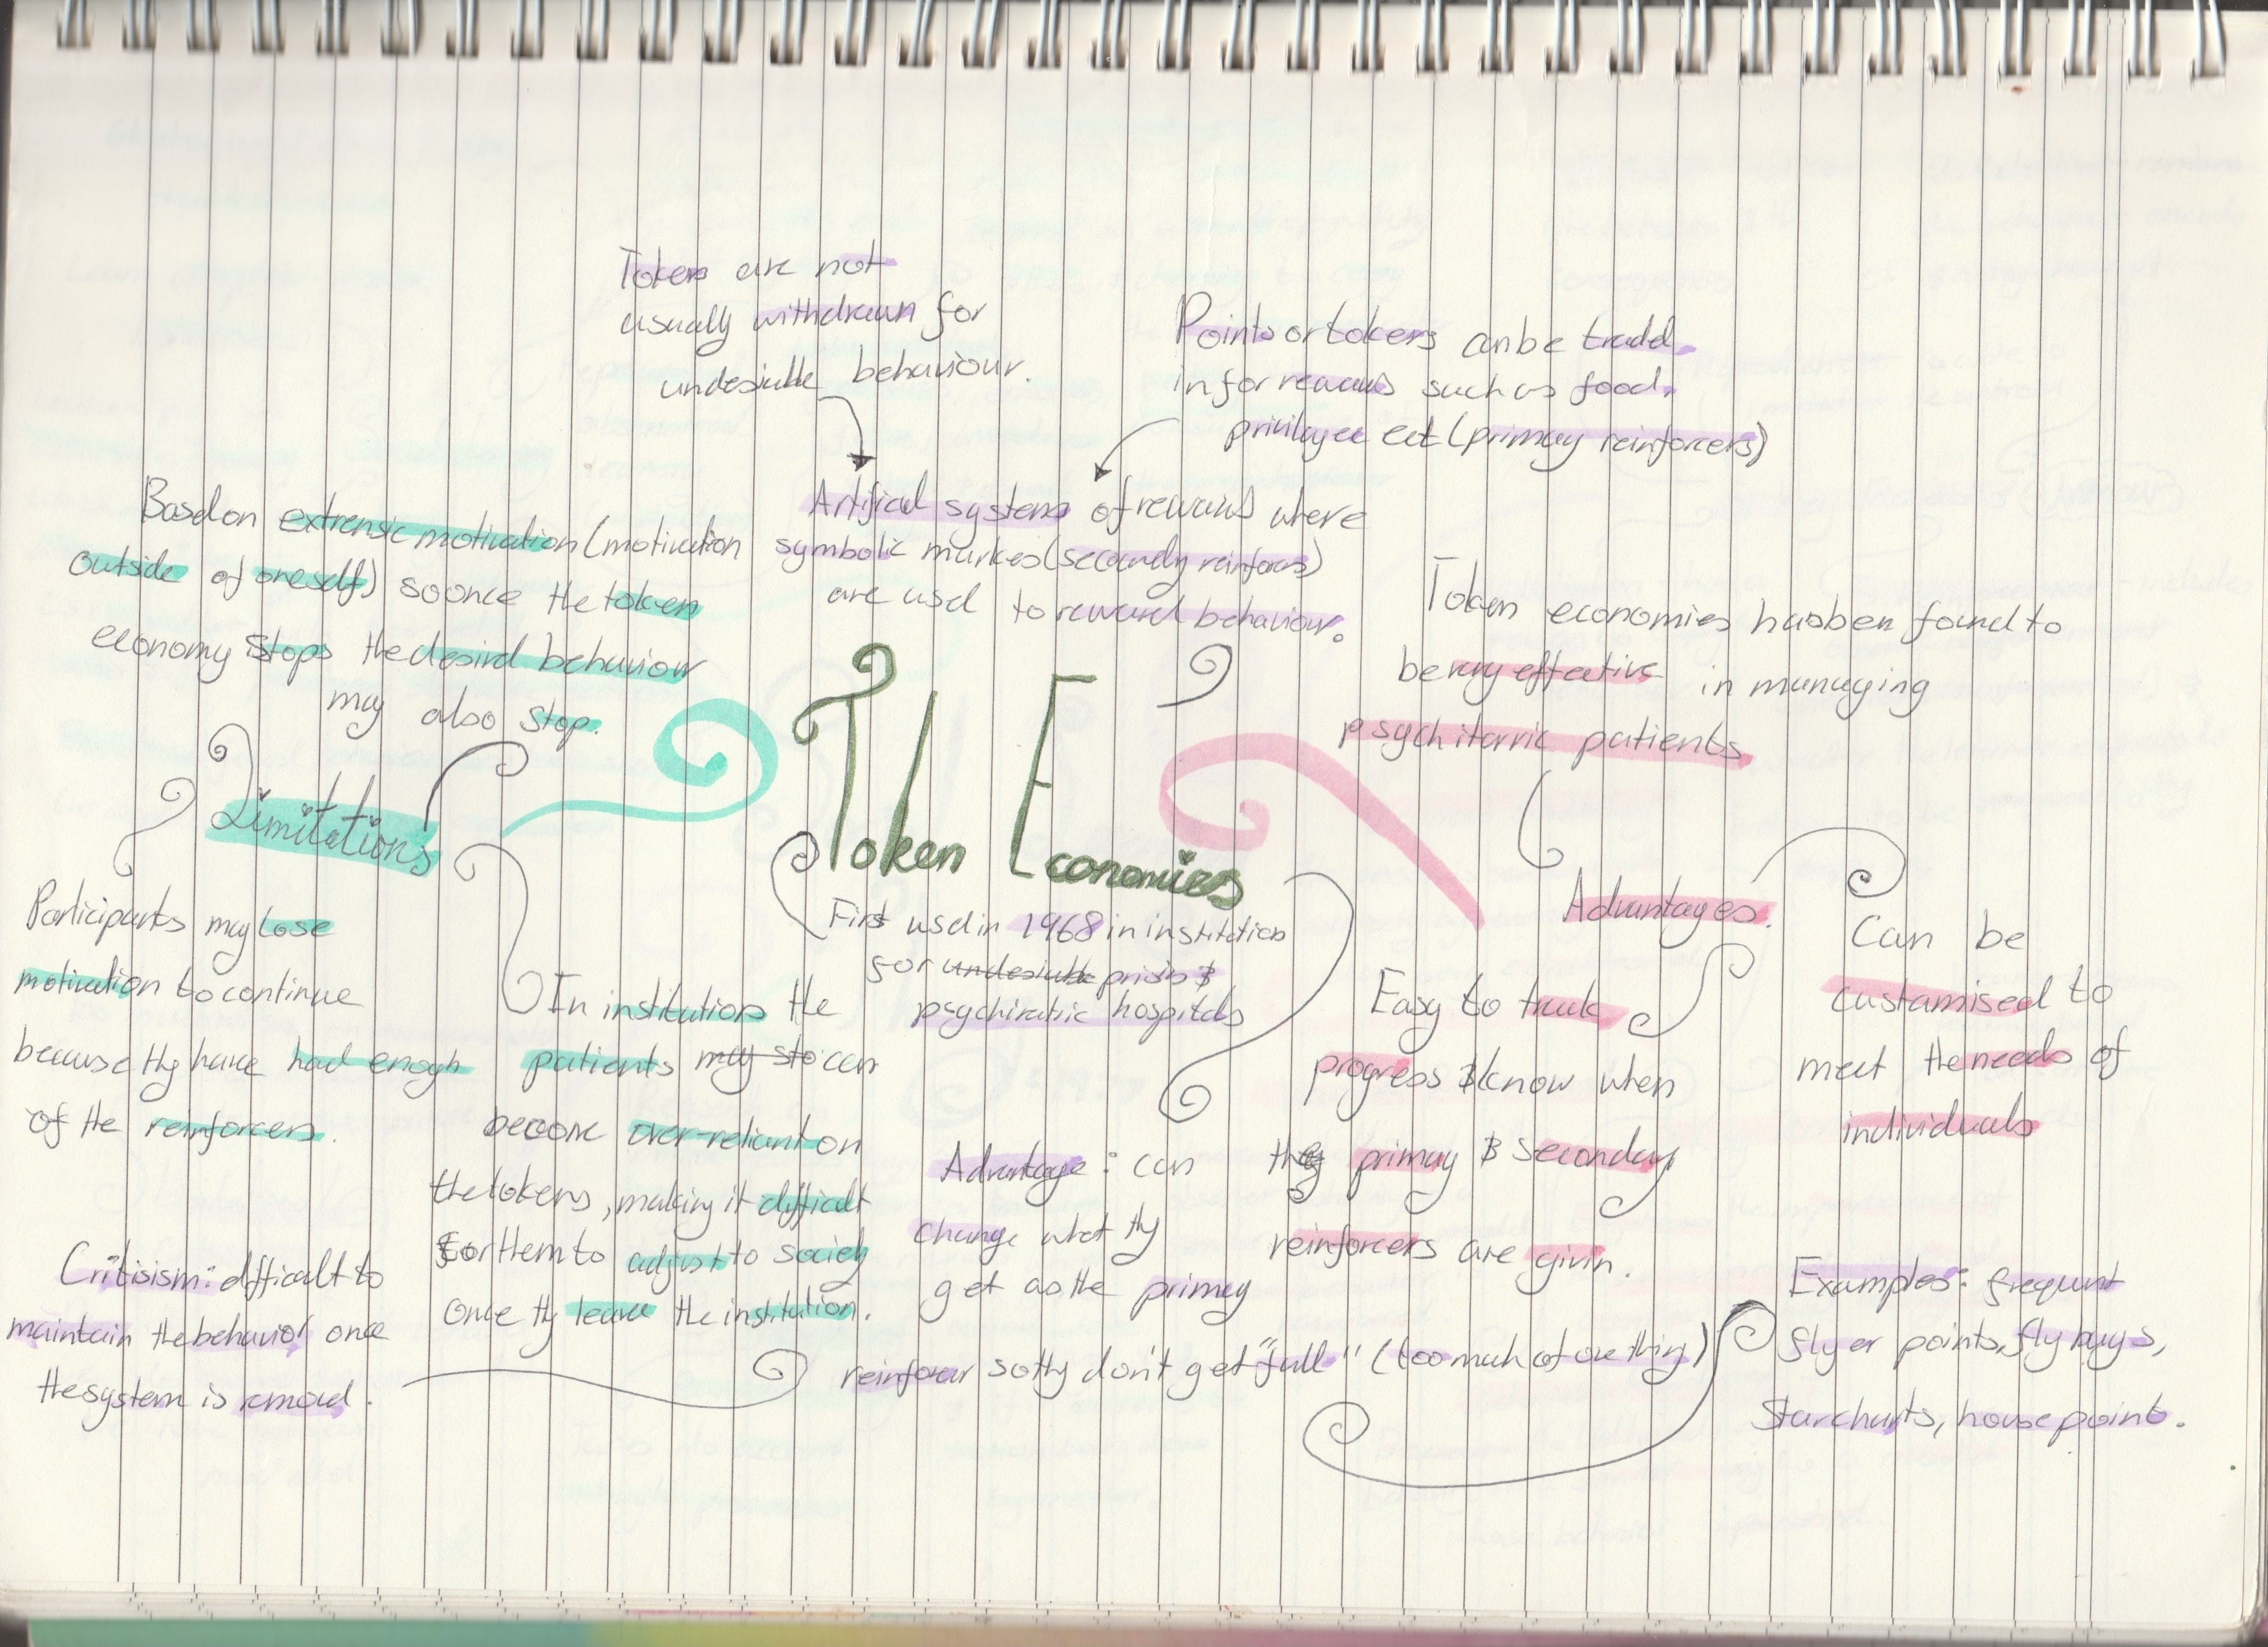 Tokens are not
usually withdrawn for
undesirable behaviour.
Points or tokens can be traded
in for rewards such as food,
privilages ect (primary reinforcers)
Artifical systems of rewards where
symbolic markes (secondary reinforcers)
are used to reward behaviour.
Based on extrensic motivation (motivation
outside of oneself) so once the token
economy stops the desired behaviour
may also stop.
Token economies has been found to
be very effective in managing
psychitarric patients
Token Economies
First used in 1968 in institutions
for undesirable prisions &
psychiratric hospitals
Limitations
Participants may lose
motivation to continue
because they have had enogh
of the reinforcers.
In institutions the
patients may sto can
become over-reliant on
the tokens, making it difficult
for them to adjust to society
once they leave the institution.
Critisism: difficult to
maintain the behavior once
the system is removed.
Advantage: can
change what they
get as the primary
reinforcer so they don't get "full" (too much of one thing)
Advantages.
Easy to track
progress & know when
the primary & seconday
reinforcers are givin.
Can be
custamised to
meet the needs of
individuals
Examples: frequent
flyer points, fly buys,
Star charts, house points.